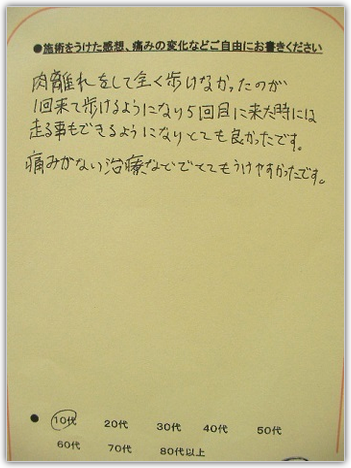 ●施術をうけた感想、痛みの変化などご自由にお書きください
肉離れをして全く歩けなかったのが
1回来て歩けるようになり5回目に来た時には
走る事もできるようになりとても良かったです。
痛みがない治療なのでとてもうけやすかったです。
● 10代 20代 30代 40代 50代
60代 70代 80代以上